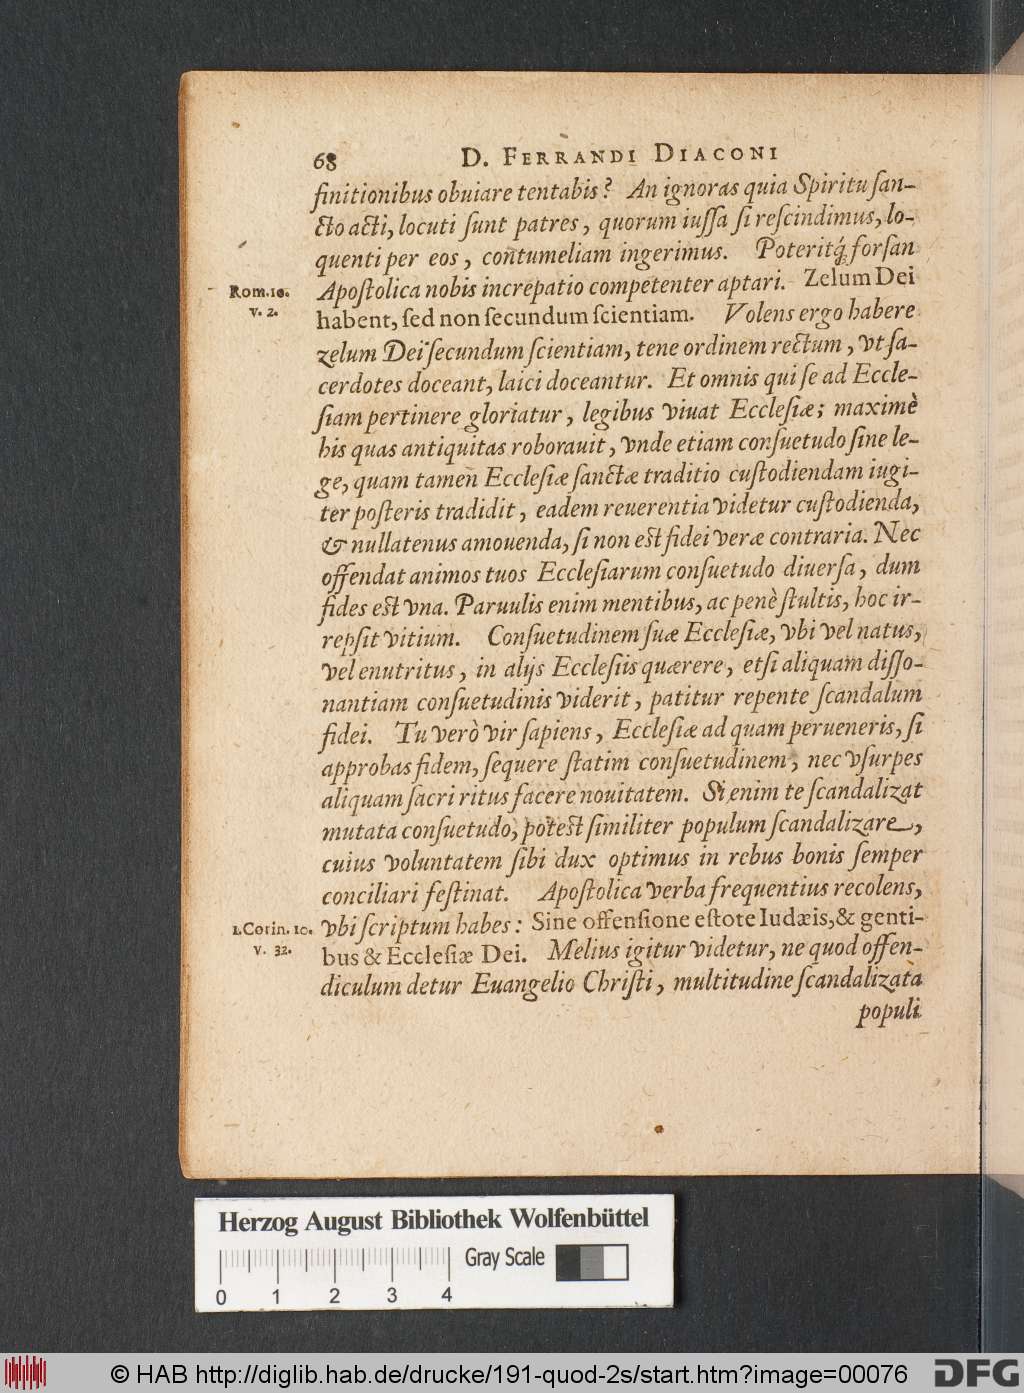 68 D. FERRANDI DIACONI
finitionibus obuiare tentabis? An ignoras quia Spiritu ſan-
cto acti, locuti ſunt patres, quorum iuſſa ſi reſcindimus, lo-
quenti per eos, contumeliam ingerimus. Poteritq́; forſan
Rom. 10. Apoſtolica nobis increpatio competenter aptari. Zelum Dei
v. 2. habent, ſed non ſecundum ſcientiam. Volens ergo habere
zelum Dei ſecundum ſcientiam, tene ordinem rectum, vt ſa-
cerdotes doceant, laici doceantur. Et omnis qui ſe ad Eccle-
ſiam pertinere gloriatur, legibus viuat Eccleſiæ; maximè
his quas antiquitas roborauit, vnde etiam conſuetudo ſine le-
ge, quam tamen Eccleſiæ ſanctæ traditio cuſtodiendam iugi-
ter poſteris tradidit, eadem reuerentia videtur cuſtodienda,
& nullatenus amouenda, ſi non eſt fidei veræ contraria. Nec
offendat animos tuos Eccleſiarum conſuetudo diuerſa, dum
fides eſt vna. Paruulis enim mentibus, ac penè ſtultis, hoc ir-
repſit vitium. Conſuetudinem ſuæ Eccleſiæ, vbi vel natus,
vel enutritus, in alijs Eccleſiis quærere, etſi aliquam diſſo-
nantiam conſuetudinis viderit, patitur repente ſcandalum
fidei. Tu verò vir ſapiens, Eccleſiæ ad quam perueneris, ſi
approbas fidem, ſequere ſtatim conſuetudinem, nec vſurpes
aliquam ſacri ritus facere nouitatem. Si enim te ſcandalizat
mutata conſuetudo, poteſt ſimiliter populum ſcandalizare,
cuius voluntatem ſibi dux optimus in rebus bonis ſemper
conciliari feſtinat. Apoſtolica verba frequentius recolens,
1. Corin. 10. vbi ſcriptum habes: Sine offenſione eſtote Iudæis, & genti-
v. 32. bus & Eccleſiæ Dei. Melius igitur videtur, ne quod offen-
diculum detur Euangelio Chriſti, multitudine ſcandalizata
populi
Herzog August Bibliothek Wolfenbüttel
Gray Scale
0 1 2 3 4
© HAB http://diglib.hab.de/drucke/191-quod-2s/start.htm?image=00076 DFG